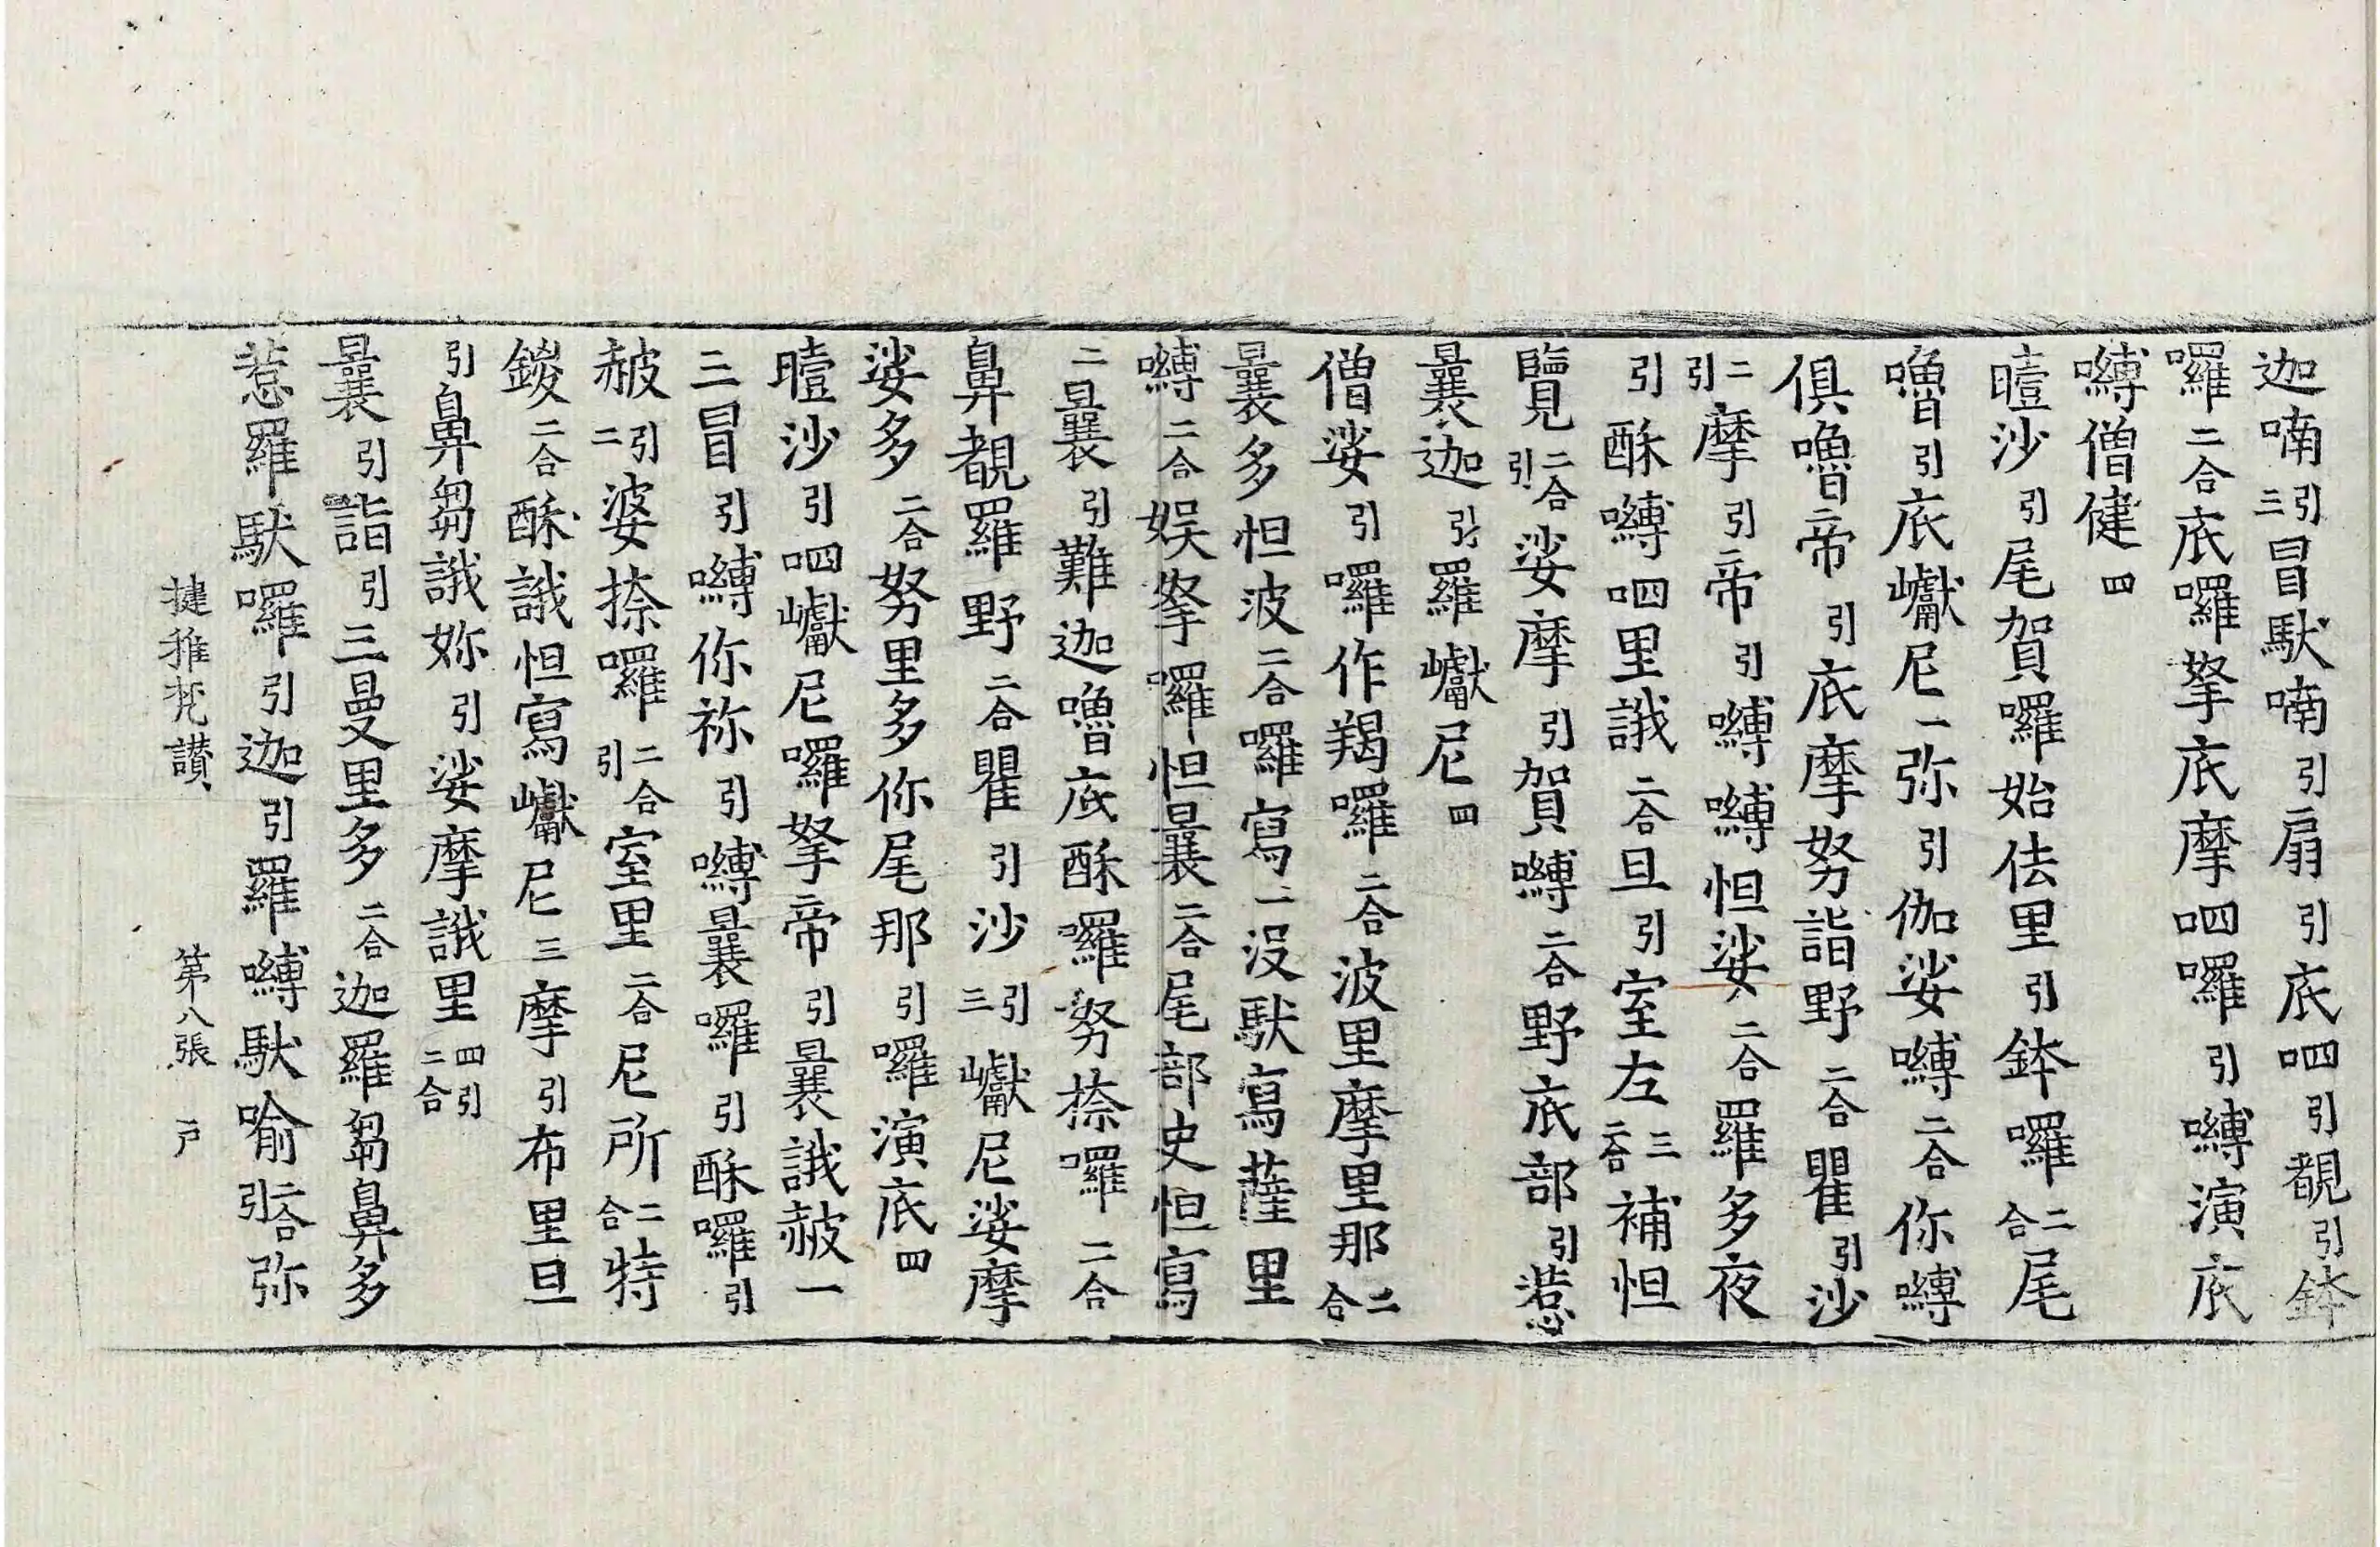 迦喃引三冒馱喃引扇引底呬引覩引鉢
囉二合底囉拏底摩呬囉引嚩演底
嚩僧健四
曀沙引尾賀囉始佉里引鉢囉二合尾
嚕引底巘尼一弥引伽娑嚩二合你嚩
俱嚕帝引底摩努詣野二合瞿引沙
二引摩引帝引嚩嚩怛娑二合羅多夜
引酥嚩呬里誐二合旦引室左三二合補怛
覽二合引娑摩引賀嚩二合野底部引惹
曩迦引羅巘尼四
僧娑引囉作羯囉二合波里摩里那二合
曩多怛波二合囉寫一沒馱寫薩里
嚩二合娛拏囉怛曩二合尾部史怛寫
二曩引難迦嚕底酥囉努捺囉二合
鼻覩羅野二合瞿引沙引三巘尼娑摩
娑多二合努里多你尾那引囉演底四
曀沙引呬巘尼囉拏帝引曩誐赧一
三冒引嚩你祢引嚩曩囉引酥囉引
赧引二婆捺囉二合引室里二合尼所二合特
鍐二合酥誐怛寫巘尼三摩引布里旦
引鼻芻誐妳引娑摩誐里四引二合
曩引詣引三曼里多二合迦羅芻鼻多
惹羅馱囉引迦引羅嚩馱喻二合引弥
揵稚梵讃　第八張　戸